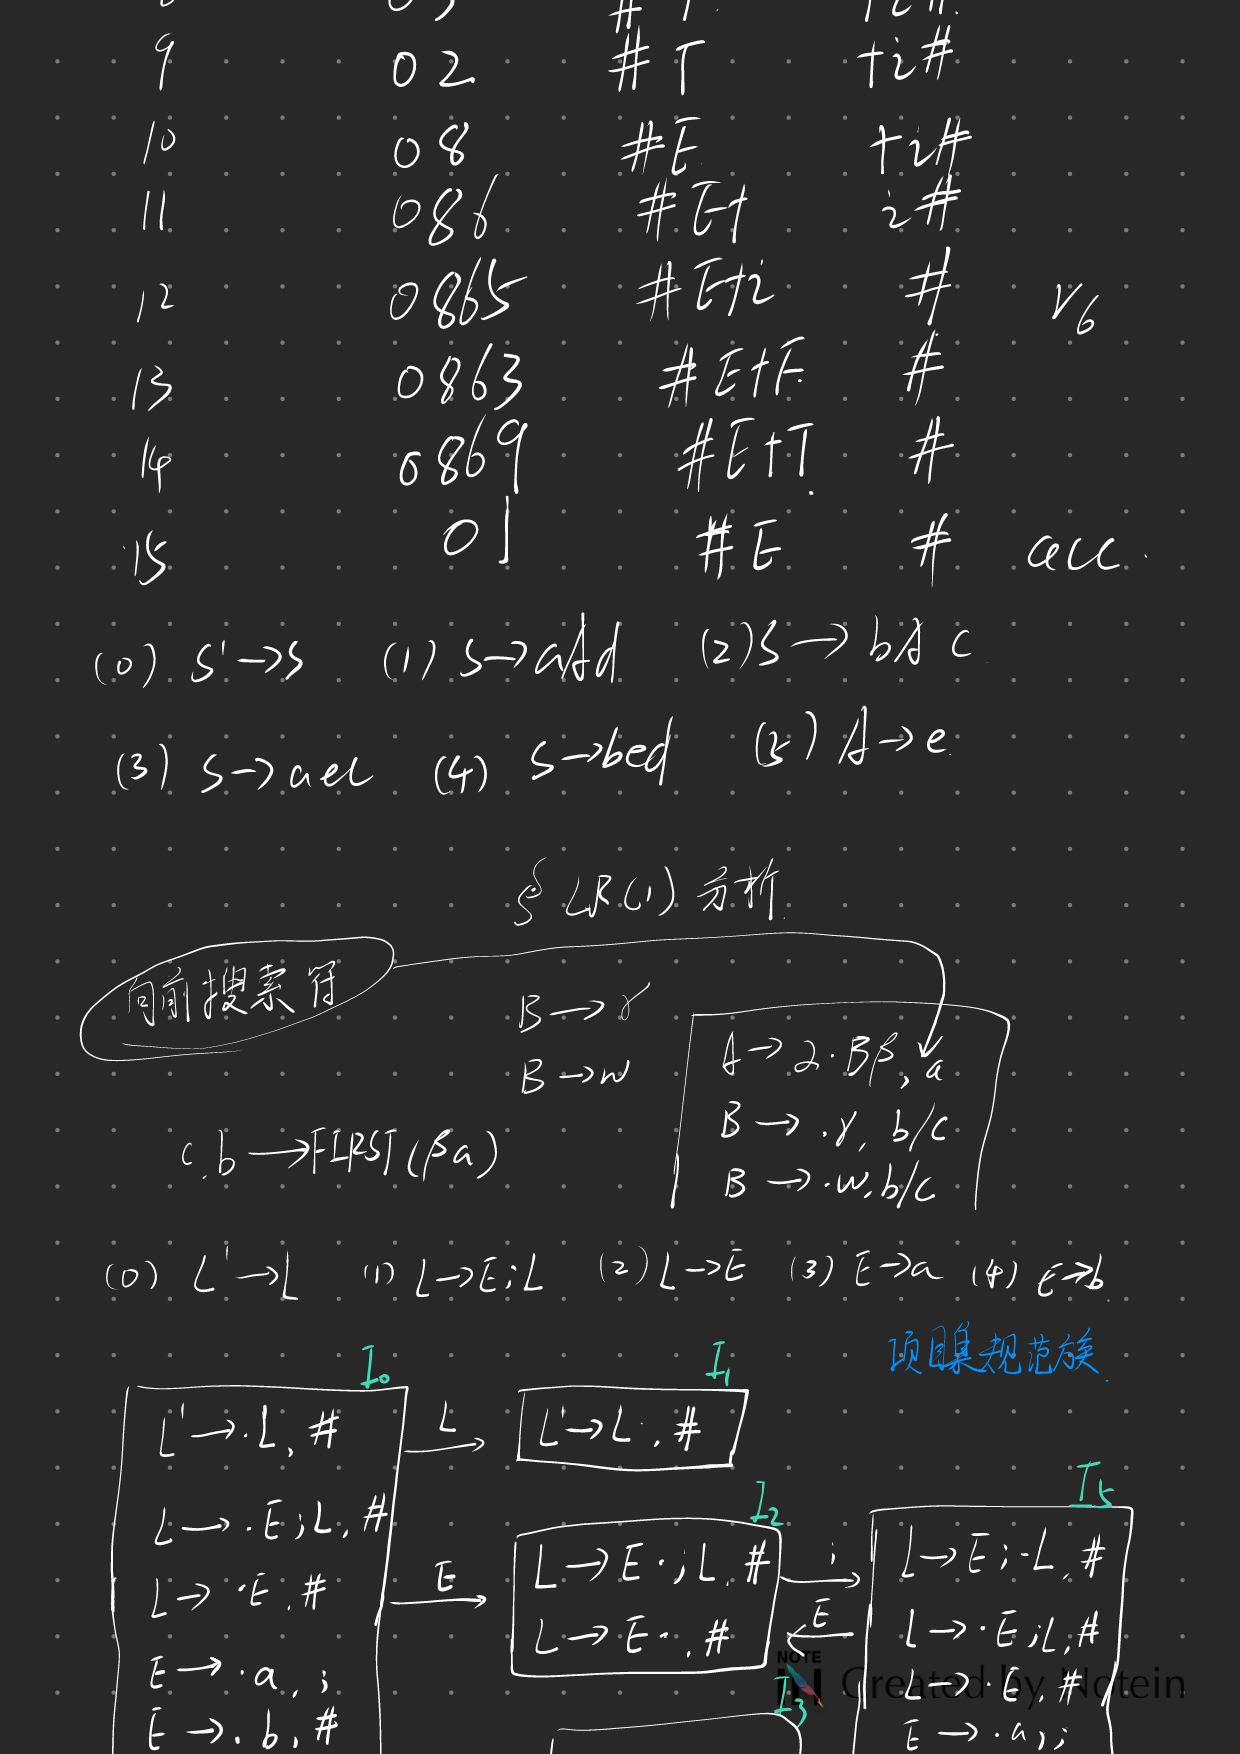 9 02 #T +i#
10 08 #E +i#
11 086 #E+ i#
12 0865 #E+i # r6
13 0863 #E+F #
14 0869 #E+T #
15 01 #E # acc
(0) S'→S (1) S→aAd (2) S→bAc
(3) S→aec (4) S→bed (5) A→e
§ LR(1) 分析
向前搜索符
B→γ
A→α·Bβ, a
B→w
B→·γ, b/c
c,b→FIRST(βa)
B→·w, b/c
(0) L'→L (1) L→E;L (2) L→E (3) E→a (4) E→b
项目集规范族
I0 I1
L'→·L, # L L'→L·, #
I2 I5
L→·E;L, # L→E·;L, # ; L→E;·L, #
L→·E, # E L→E·, # E L→·E;L, #
E→·a, ; L→·E, #
E→·b, # I3 E→·a, ;
NOTE
IN Created by Notein